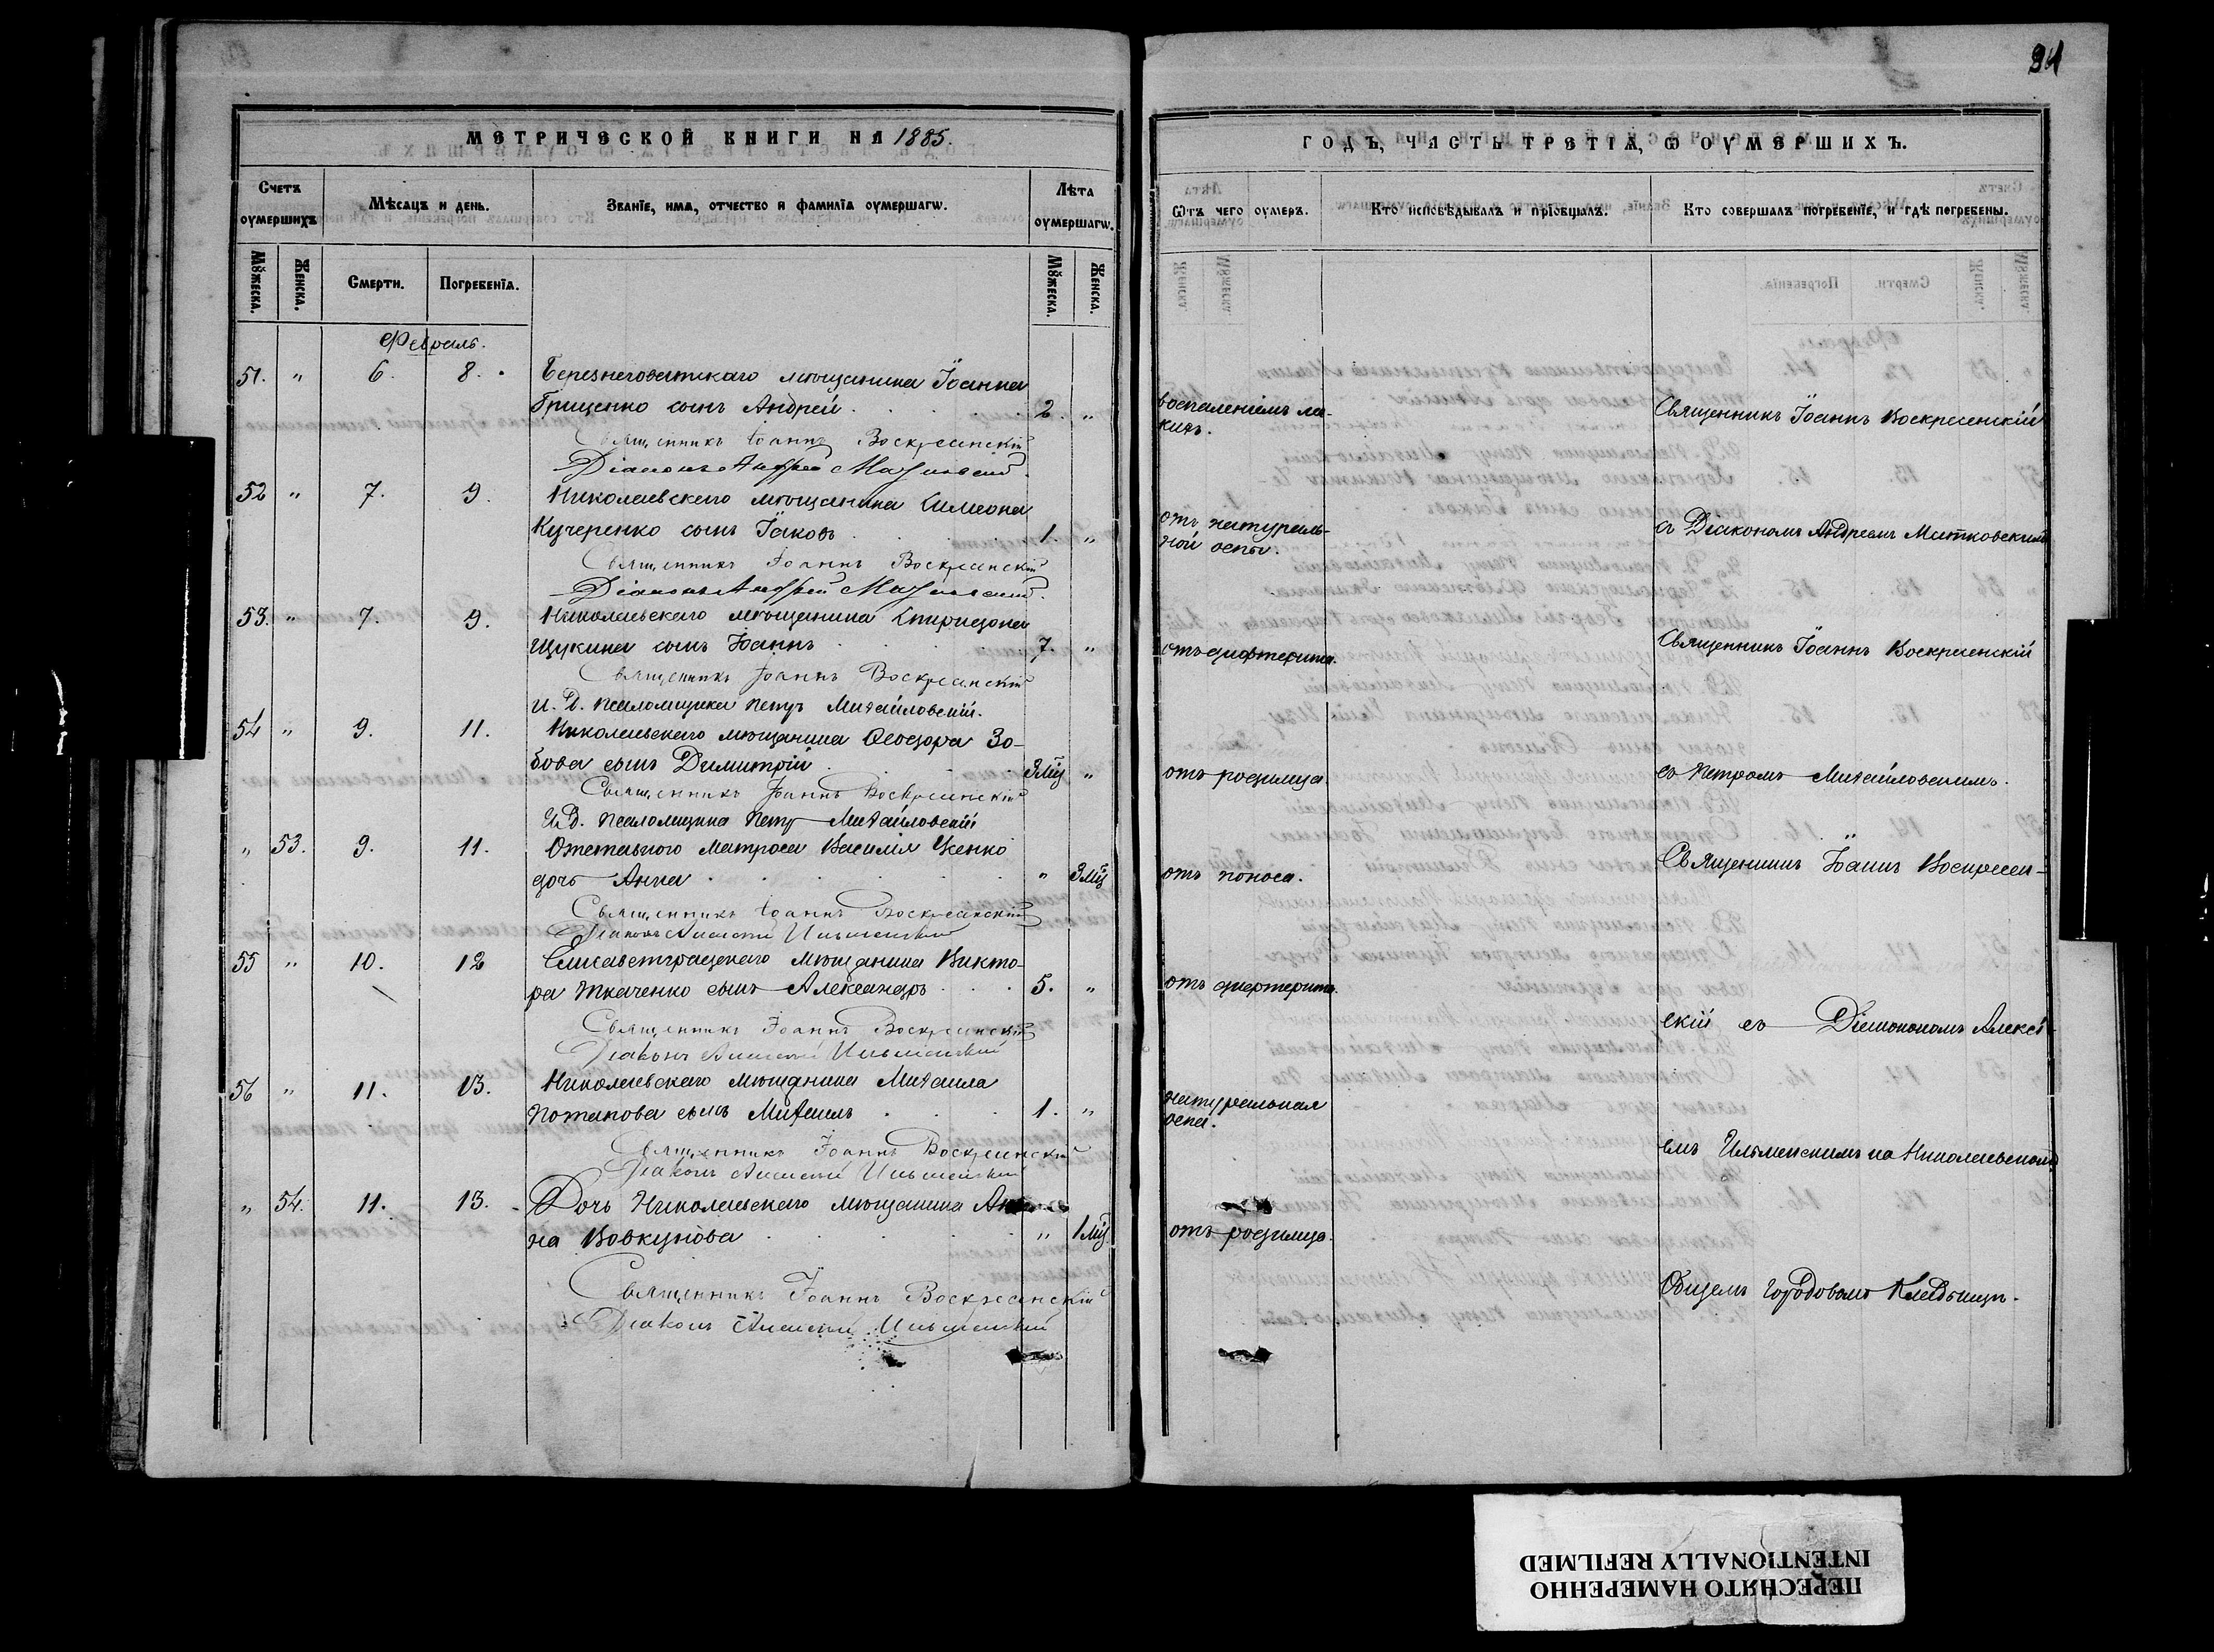 МЕТРИЧЕСКОЙ КНИГИ НА 1885.
Счетъ оумершихъ
Мѣсяцъ и день.
Званїе, имя, отчество и фамилїя оумершагѡ.
Лѣта оумершагѡ.
Мꙋжеска.
Женска.
Смерти.
Погребенїя.
Мꙋжеска.
Женска.
Февраль.
51. " 6. 8. Березнеговатскаго мѣщанина Іоанна
Грищенко сынъ Андрей 2. "
Священникъ Іоаннъ Воскресенскій
Діаконъ Андрей
52 " 7. 9. Николаевскаго мѣщанина Симеона
Кучеренко сынъ Іаковъ 1. "
Священникъ Іоаннъ Воскресенскій
Діаконъ Андрей
53. " 7. 9. Николаевскаго мѣщанина Спиридона
Щукина сынъ Іоаннъ 7. "
Священникъ Іоаннъ Воскресенскій
И. Д. псаломщика Петръ Михайловскій.
54 " 9. 11. Николаевскаго мѣщанина Ѳеодора Зо-
бова сынъ Димитрій 3 мц "
Священникъ Іоаннъ Воскресенскій
И. Д. псаломщика Петръ Михайловскій
" 53. 9. 11. Отставного матроса Василія Усенко
дочь Анна " 3 мц
Священникъ Іоаннъ Воскресенскій
Діаконъ Алексѣй Ильменскій
55 " 10. 12 Елисаветградскаго мѣщанина Викто-
ра Ткаченко сынъ Александръ 5. "
Священникъ Іоаннъ Воскресенскій
Діаконъ Алексѣй Ильменскій
56 " 11. 13. Николаевскаго мѣщанина Михаила
Потапова сынъ Михаилъ 1. "
Священникъ Іоаннъ Воскресенскій
Діаконъ Алексѣй Ильменскій
" 54. 11. 13. Дочь Николаевскаго мѣщанина Ан
на Вовкунова " 1 мц.
Священникъ Іоаннъ Воскресенскій
Діаконъ Алексѣй Ильменскій
ГОДЪ, ЧАСТЬ ТРЕТІѦ, Ѡ ОУМЕРШИХЪ.
Ѿтъ чего оумеръ.
Кто исповѣдывалъ и прїобщалъ.
Кто совершалъ погребенїе, и гдѣ погребены.
воспаленіемъ лег-
кихъ.
Священникъ Іоаннъ Воскресенскій
отъ натураль-
ной оспы.
съ Діакономъ Андреемъ Матковскимъ
отъ дифтерита.
Священникъ Іоаннъ Воскресенскій
отъ родимца
съ Петромъ Михайловскимъ.
отъ поноса.
Священникъ Іоаннъ Воскресен-
отъ дифтерита.
скій съ Діакономъ Алексѣ-
натуральная
оспа.
емъ Ильменскимъ на Николаевскомъ
отъ родимца.
Общемъ Городовомъ Кладбищѣ.
ПЕРЕСНЯТО НАМЕРЕННО
INTENTIONALLY REFILMED